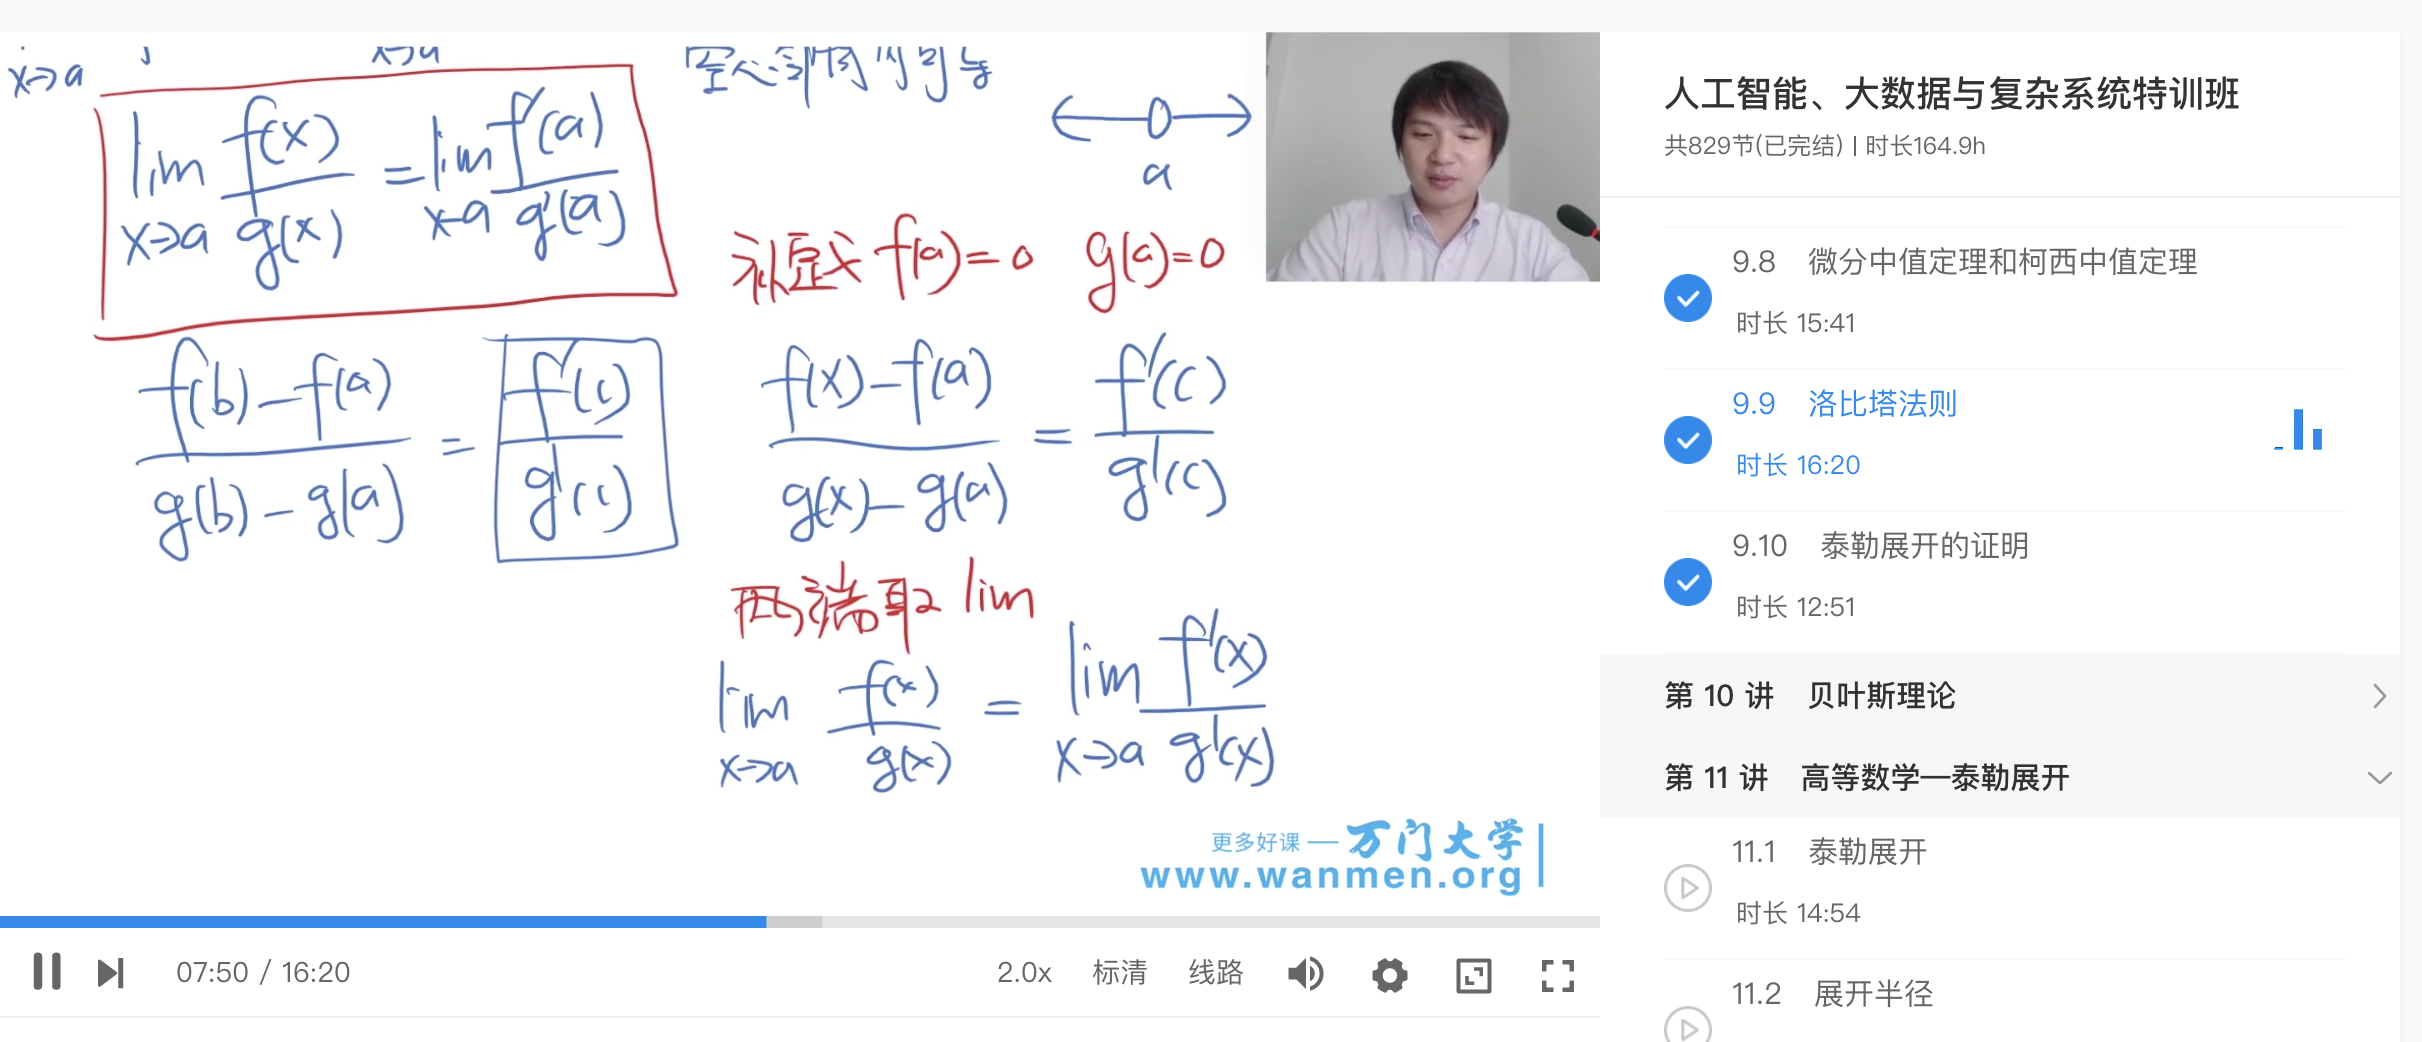 x→a
x→a
空心邻阈内可导
lim f(x)/g(x) = lim f'(a)/g'(a)
x→a x→a
a
f(a)=0 g(a)=0
(f(b)-f(a))/(g(b)-g(a)) = f'(c)/g'(c)
(f(x)-f(a))/(g(x)-g(a)) = f'(c)/g'(c)
两端取 lim
lim f(x)/g(x) = lim f'(x)/g'(x)
x→a x→a
更多好课 — 万门大学
www.wanmen.org
07:50 / 16:20
2.0x 标清 线路
人工智能、大数据与复杂系统特训班
共829节(已完结) | 时长164.9h
9.8 微分中值定理和柯西中值定理
时长 15:41
9.9 洛比塔法则
时长 16:20
9.10 泰勒展开的证明
时长 12:51
第 10 讲 贝叶斯理论
第 11 讲 高等数学—泰勒展开
11.1 泰勒展开
时长 14:54
11.2 展开半径